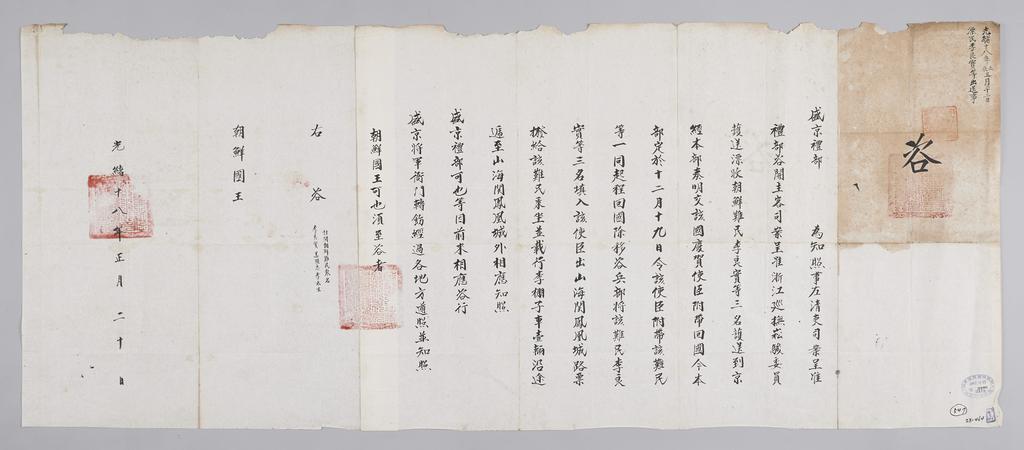 光緖十八年五月二十二日
漂民李良實等出送事
咨
盛京禮部 爲知照事左淸吏司案呈准
禮部咨開主客司案呈准浙江巡撫崧駿委員
護送漂收朝鮮難民李良實等三名護送到京
經本部奏明交該國慶賀使臣附帶回國今本
部定於十二月十九日令該使臣附帶該難民
等一同起程回國除移咨兵部將該難民李良
實等三名塡入該使臣出山海關鳳凰城路票
撥給該難民乘坐並載行李棚子車壹輛沿途
遞至山海關鳳凰城外相應知照
盛京禮部可也等因前來相應咨行
盛京將軍衙門轉飭經過各地方遵照並知照
朝鮮國王可也須至咨者
計開朝鮮難民數名
右 咨
朝鮮國王
光緖十八年正月二十日
547